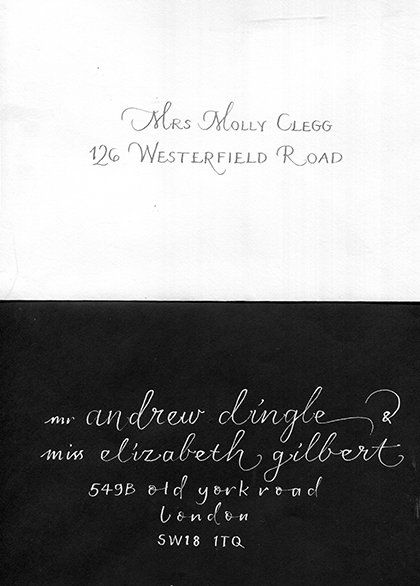 Mrs Molly Clegg
126 Westerfield Road
mr andrew dingle &
miss elizabeth gilbert
549B old york road
london
SW18 1TQ